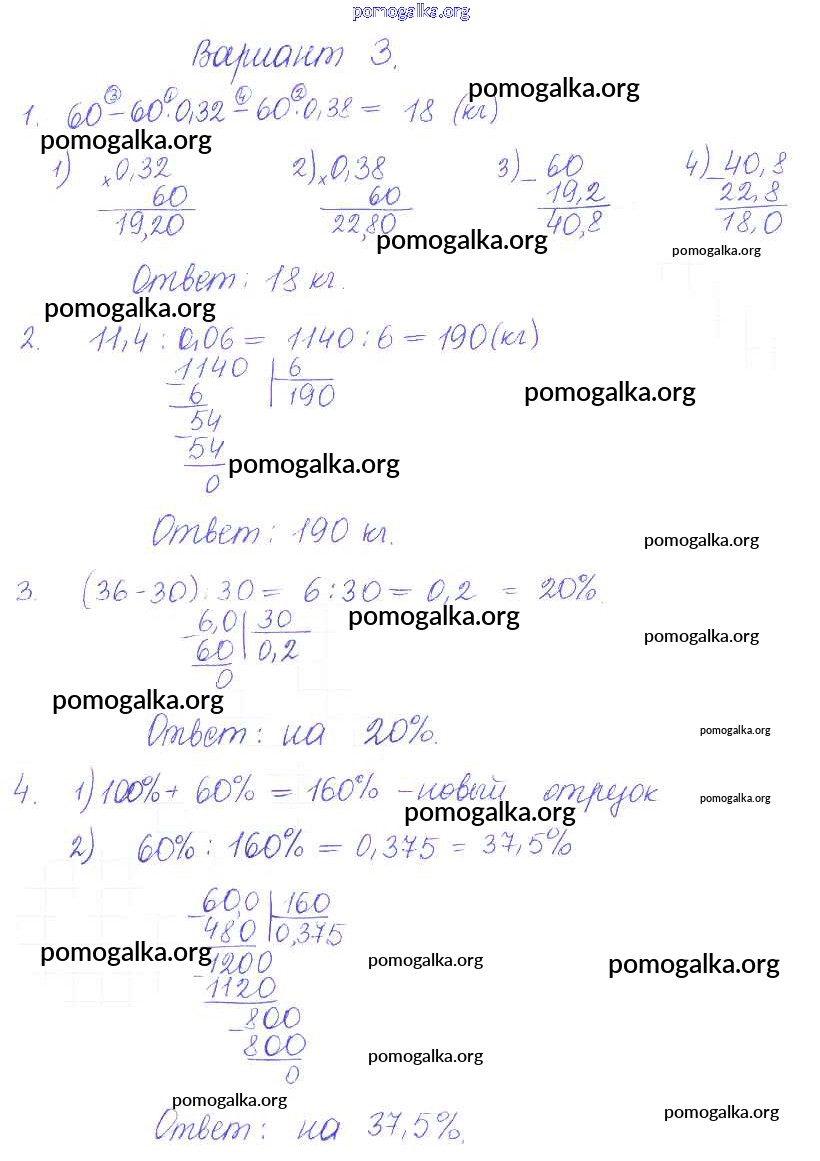 pomogalka.org
Вариант 3.
pomogalka.org
1. 60 ③− 60 ①· 0,32 ④− 60 ②· 0,38 = 18 (кг)
pomogalka.org
1) × 0,32 2) × 0,38 3) − 60 4) − 40,8
60 60 19,2 22,8
19,20 22,80 40,8 18,0
pomogalka.org
pomogalka.org
Ответ: 18 кг.
pomogalka.org
2. 11,4 : 0,06 = 1140 : 6 = 190 (кг)
− 1140 | 6
6 190
pomogalka.org
54
− 54
pomogalka.org
0
Ответ: 190 кг.
pomogalka.org
3. (36 - 30) : 30 = 6 : 30 = 0,2 = 20%.
pomogalka.org
− 6,0 | 30
60 0,2
pomogalka.org
0
pomogalka.org
Ответ: на 20%.
pomogalka.org
4. 1) 100% + 60% = 160% - новый отрезок
pomogalka.org
pomogalka.org
2) 60% : 160% = 0,375 = 37,5%
− 60,0 | 160
480 0,375
pomogalka.org
− 1200
pomogalka.org
pomogalka.org
1120
− 800
800
pomogalka.org
0
pomogalka.org
pomogalka.org
Ответ: на 37,5%.